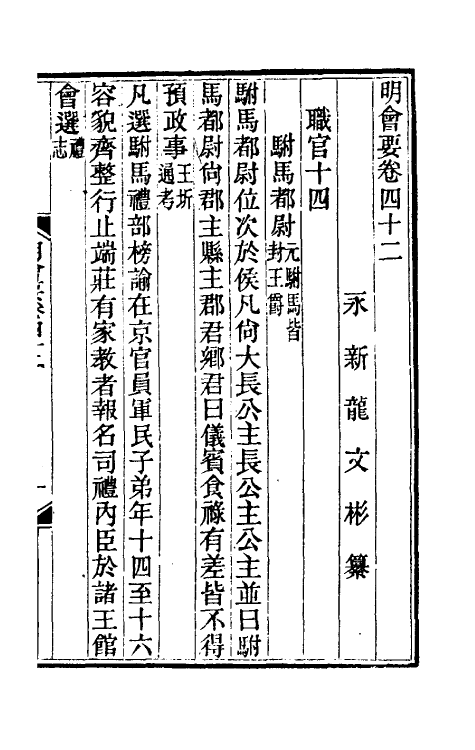 明會要卷四十二
永新龍文彬纂
職官十四
駙馬都尉元駙馬皆封王爵
駙馬都尉位次於侯凡尙大長公主長公主公主並曰駙
馬都尉尙郡主縣主郡君鄉君曰儀賓食祿有差皆不得
預政事王圻通考
凡選駙馬禮部榜諭在京官員軍民子弟年十四至十六
容貌齊整行止端莊有家教者報名司禮內臣於諸王館
會選禮志